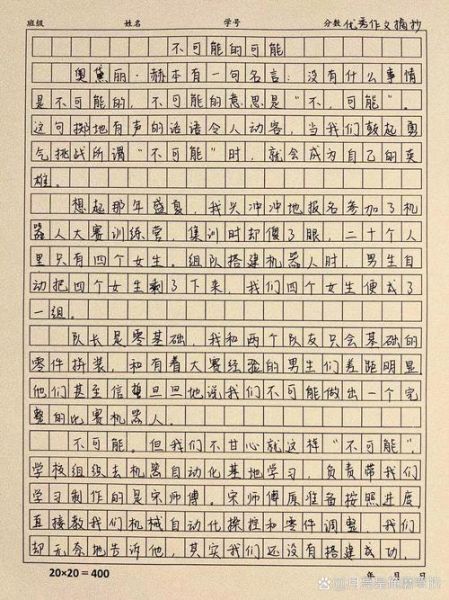 班级 姓名 学号 分数 优秀作文摘抄
不可能的可能
奥黛丽·赫本有一句名言：没有什么事情
是不可能的，不可能的意思是“不，可能”。
这句掷地有声的话语令人动容，当我们鼓起勇
气挑战所谓“不可能”时，就会成为自己的英
雄。
想起那年盛夏，我头冲冲地报名参加了机
器人大赛训练营，集训时却傻了眼，二十个人
里只有四个女生。组队搭建机器人时，男生自
动把四个女生剩了下来，我们四个女生便成了
一组。
队长是零基础，我和两个队友只会基础的
零件拼装，和有着大赛经验的男生们差距明显
他们甚至信誓旦旦地说我们不可能做出一个完
整的比赛机器人。
不可能。但我们不甘心就这样“不可能”。
学校组织去机器自动化基地学习，负责带我们
学习制作的是宋师傅。宋师傅原准备按照进度
直接教我们机械自动化操控和零件调整，我们
却无奈地告诉他，其实我们还没有搭建成功，
20×20=400 年 月 日